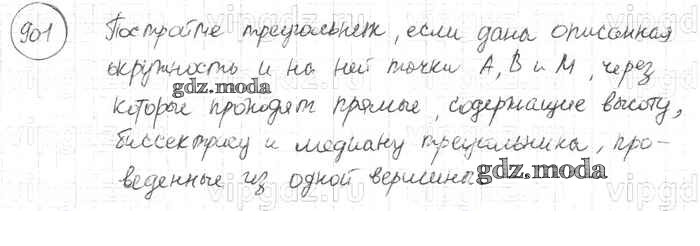 901 Постройте треугольник, если дана описанная
окружность и на ней точки A, B и M, через
gdz.moda
которые проходят прямые, содержащие высоту,
биссектрису и медиану треугольника, про-
gdz.moda
веденные из одной вершины.